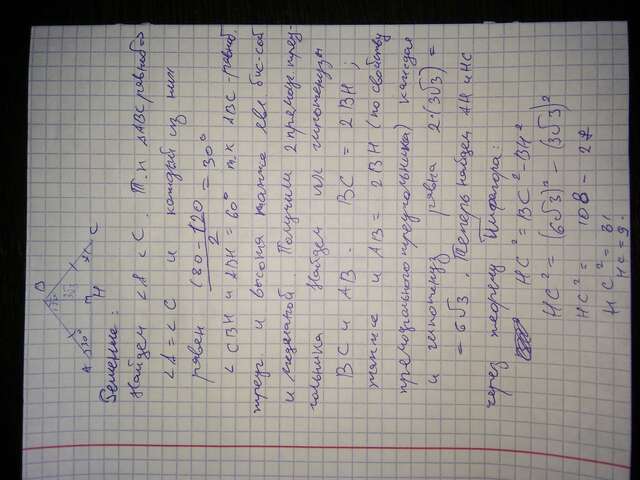 B
120°
3√3
A 30° H C
Решение:
Найдем ∠A и ∠C. Т.к △ABC равноб ⇒
∠A = ∠C и каждый из них
равен (180-120)/2 = 30°
∠CBH и ABH = 60° т.к ABC равноб.
треуг и высота также явл. бис-сой
и медианой. Получили 2 прямоуг. треу-
гольника. Найдем их гипотенузы
BC и AB. BC = 2BH;
также и AB = 2BH (по свойству
прямоугольного треугольника) каждая
и гипотенуз равна 2·(3√3) =
= 6√3. Теперь найдем AH и HC
через теорему Пифагора:
HC² = BC² - BH²
HC² = (6√3)² - (3√3)²
HC² = 108 - 27
HC² = 81
HC = 9.